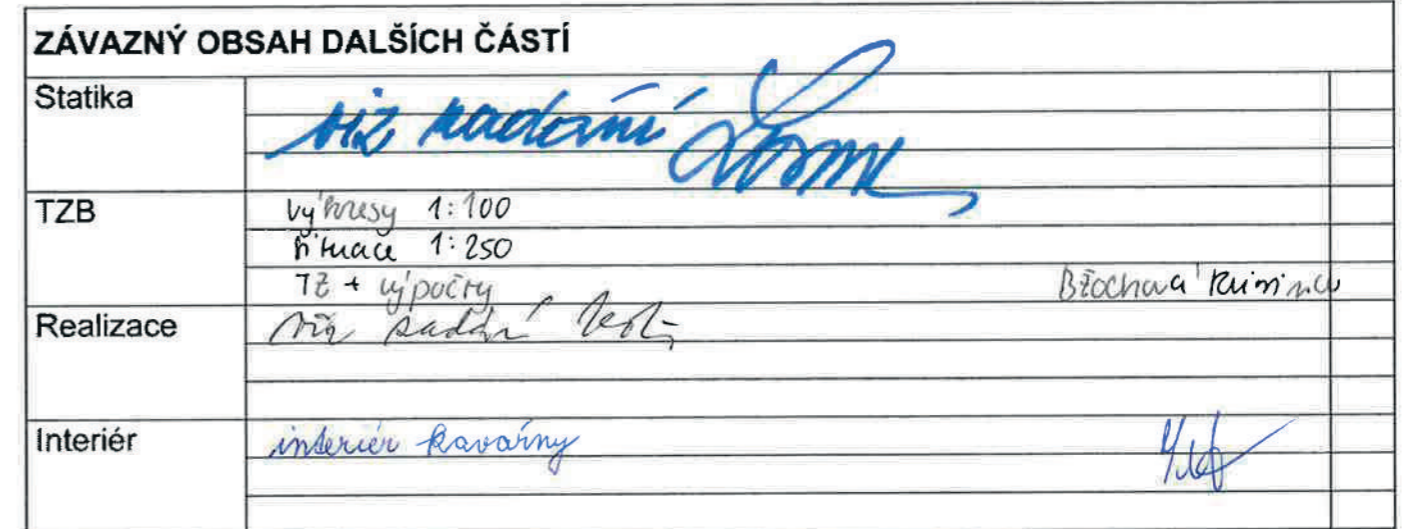 ZÁVAZNÝ OBSAH DALŠÍCH ČÁSTÍ
Statika
viz zadání
TZB
výkresy 1:100
situace 1:250
TZ + výpočty
Realizace
viz zadání
Interiér
interiér kavárny